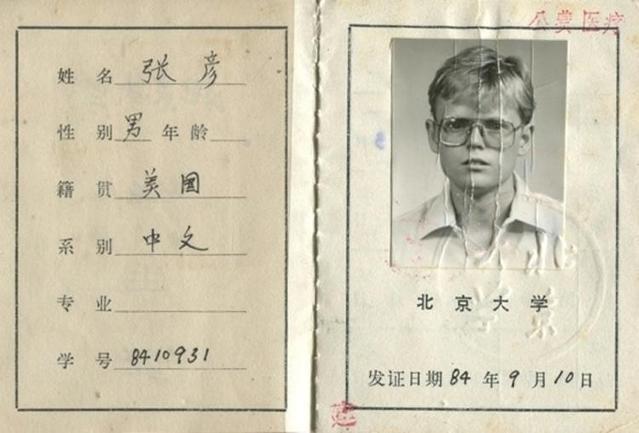 姓 名 张 彦
性 别 男 年 龄
籍 贯 美 国
系 别 中 文
专 业
学 号 8410931
公费医疗
北 京 大 学
发证日期 84 年 9 月 10 日